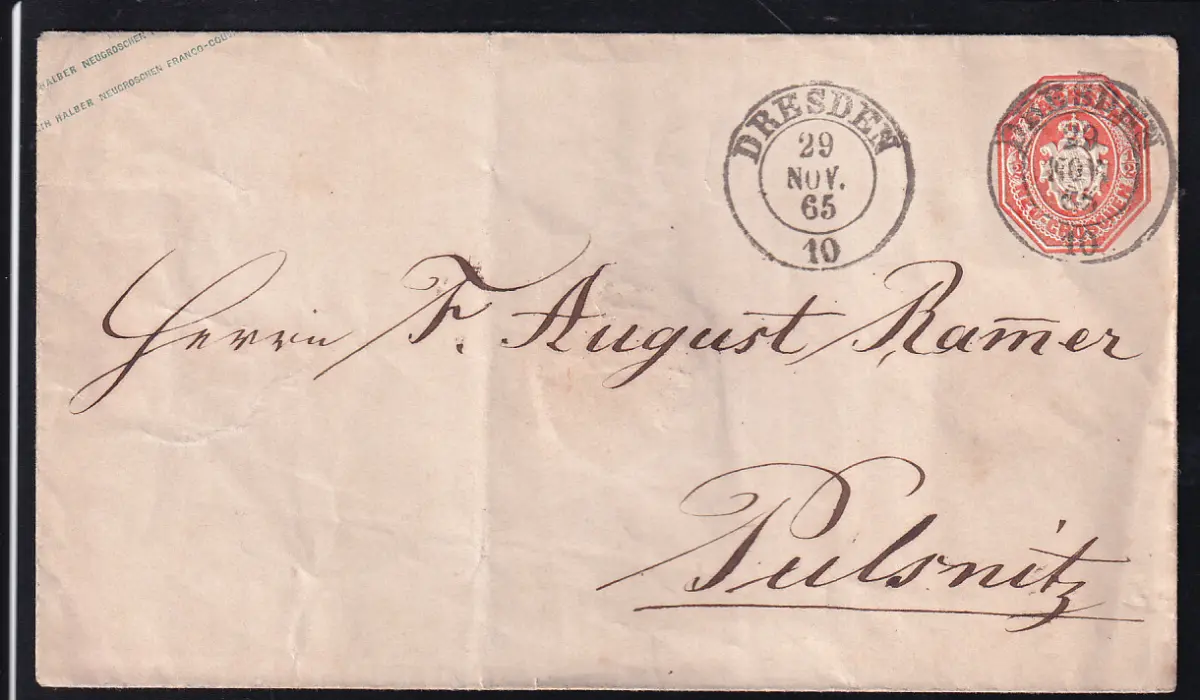 HALBER NEUGROSCHEN
EIN HALBER NEUGROSCHEN FRANCO-COU
DRESDEN
29
NOV.
65
10
DRESDEN
29
NOV
65
10
Herrn F. August Ram̅er
Pulsnitz